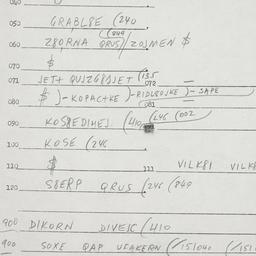 040
050 GRABL8E (240
(849
060 Z8ORNA QRUS//ZOJMEN $
070 $
071 JET+ QUJZG8OJET (135
072 —
080 $ )-KOPACTKE )-RIDLBOJKE )-SAPE
081
090 KOS8EDIHEJ (410 (246 (002
100 KOSE (246
110 $ 111 VILK8I VILK8
120 S8ERP QRUS (246 (849
900 DIKORN DIVEIC (410
900 SOXE QAP USAKERN (/151040 (/151